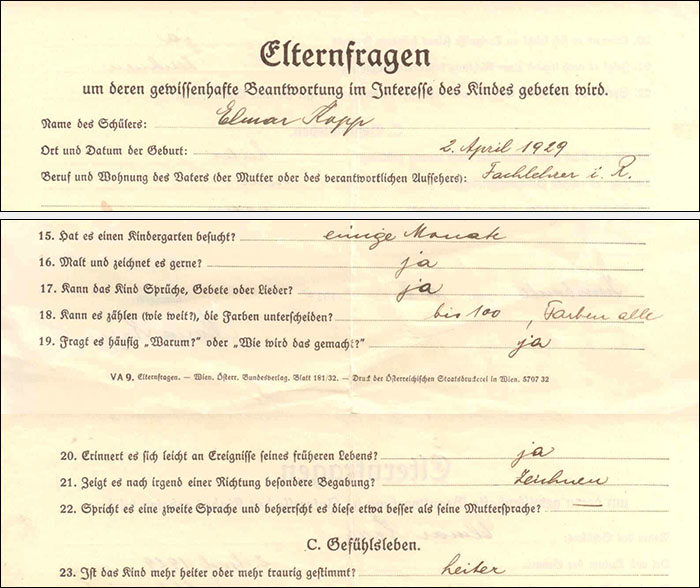 Elternfragen
um deren gewissenhafte Beantwortung im Interesse des Kindes gebeten wird.
Name des Schülers: Elmar Kopp
Ort und Datum der Geburt: 2. April 1929
Beruf und Wohnung des Vaters (der Mutter oder des verantwortlichen Aufsehers): Fachlehrer i. R.
15. Hat es einen Kindergarten besucht? einige Monate
16. Malt und zeichnet es gerne? ja
17. Kann das Kind Sprüche, Gebete oder Lieder? ja
18. Kann es zählen (wie weit?), die Farben unterscheiden? bis 100, Farben alle
19. Fragt es häufig „Warum?" oder „Wie wird das gemacht?" ja
VA 9. Elternfragen. — Wien. Österr. Bundesverlag. Blatt 181/32. — Druck der Österreichischen Staatsdruckerei in Wien. 5707 32
20. Erinnert es sich leicht an Ereignisse seines früheren Lebens? ja
21. Zeigt es nach irgend einer Richtung besondere Begabung? Zeichnen
22. Spricht es eine zweite Sprache und beherrscht es diese etwa besser als seine Muttersprache? —
C. Gefühlsleben.
23. Ist das Kind mehr heiter oder mehr traurig gestimmt? heiter